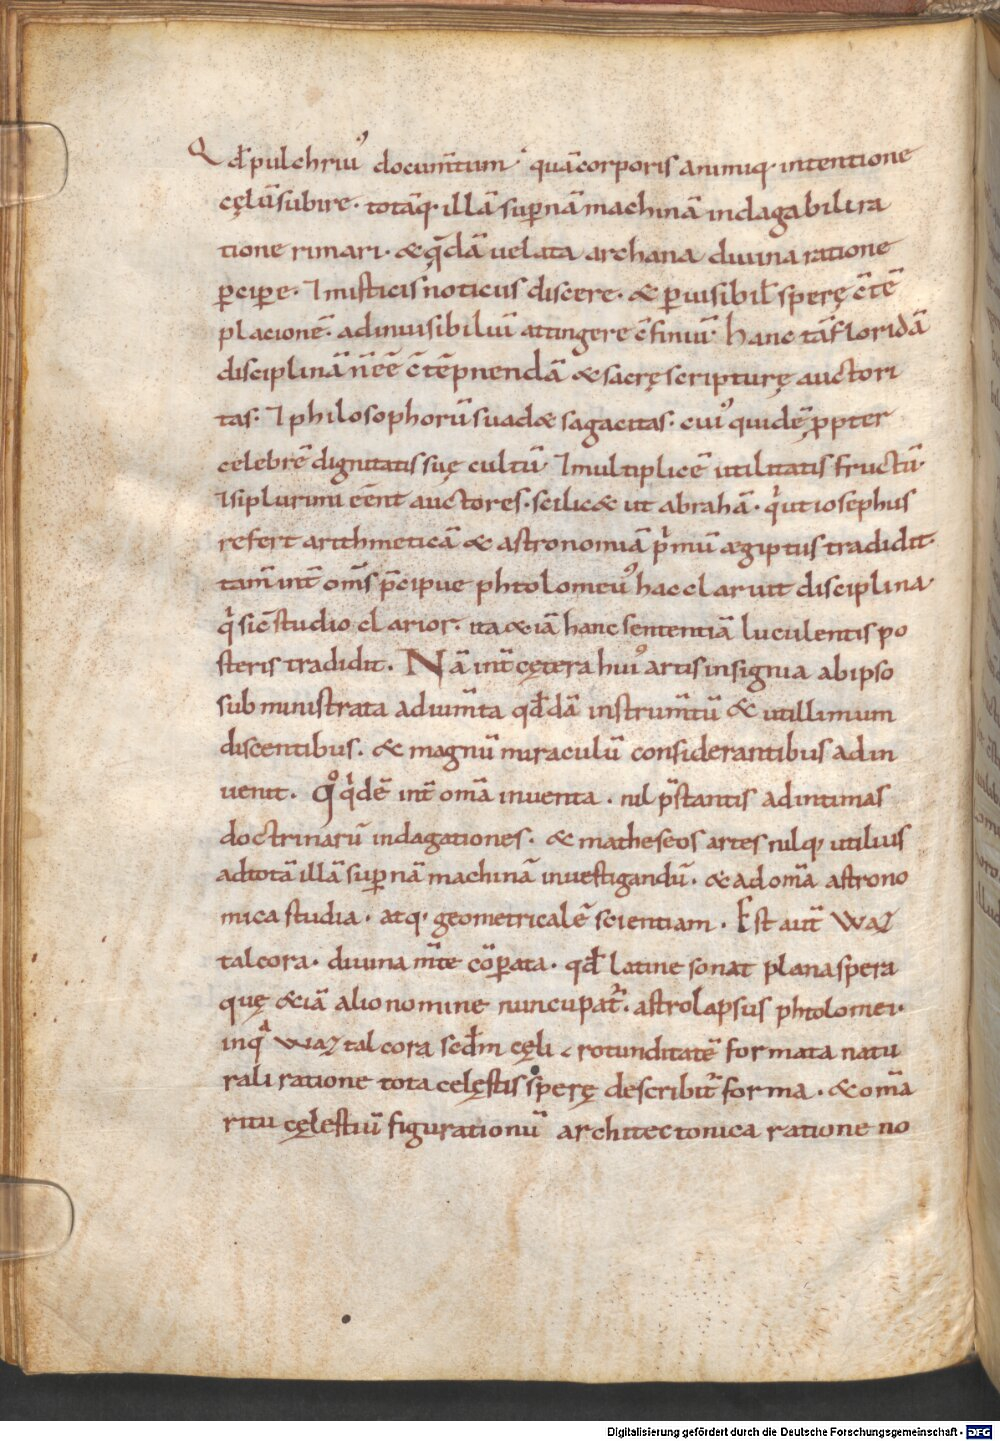 Qđ pulchriuꝰ docum̄tum· quā corporis animiq· intentione
cęlū subire· totāq· illā suꝑnā machinā indagabili ra
tione rimari· & q̄dā uelata archana diuina ratione
ꝑciꝑe· ⁊ misticis noticiis discere· & ꝑ uisibil̄ sperę c̄tē
placionē· ad inuisibiliū attingere c̄finiū· hanc tā floridā
disciplinā n̄ eē c̄tēpnendā & sacrę scripturę auctori
tas· ⁊ philosophorū suad& sagacitas· cuiꝰ quidē ꝓpter
celebrē dignitatis suę cultū· ⁊ multiplicē utilitatis fructū·
⁊ si plurimi eēnt auctores· scilic& ut abrahā· q̄ ut iosephus
refert arithmeticā & astronomiā p̄mū ægiptus tradidit·
tam̄ int̄ om̄s p̄cipue phtolomeuꝰ hac claruit disciplina·
q̄ sic̄ studio clarior· ita &iā hanc sententiā luculentis po
steris tradidit. Nā int̄ cętera huiꝰ artis insignia ab ipso
subministrata adium̄ta qđdā instrum̄tū & utillimum
discentibus· & magnū miraculū considerantibus adin
uenit. Qͦ q̄dē int̄ om̄a inuenta· nil p̄stantis ad intimas
doctrinarū indagationes· & matheseos artes nilq· utilius
ad totā illā suꝑnā machinā inuestigandū· & ad om̄a astrono
mica studia· atq· geometricalē scientiam. Est aut̄ waz
talcora· diuina m̄te cōꝑata· qđ latine sonat plana spera
quę &iā alio nomine nuncupat̄· astrolapsus phtolomei·
in qᵃ waztalcora scđm cęli rotunditatē formata natu
rali ratione tota celęstis sperę describit̄ forma· & om̄a
ritu cęlestiū figurationū architectonica ratione no
Digitalisierung gefördert durch die Deutsche Forschungsgemeinschaft - DFG